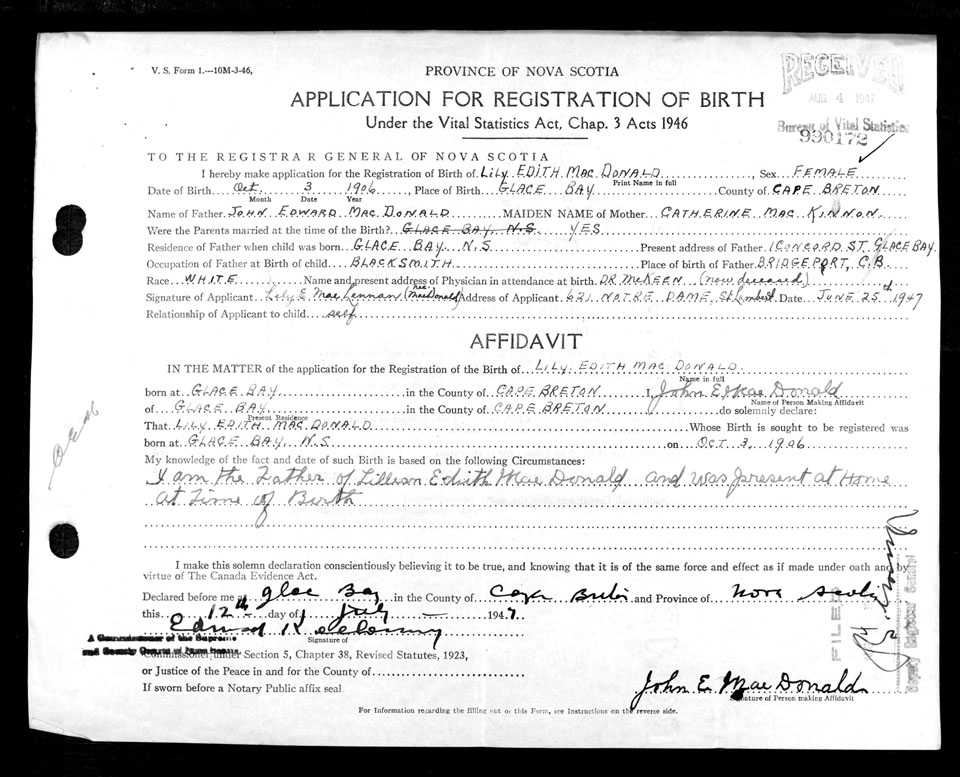 V. S. Form 1.---10M-3-46,
PROVINCE OF NOVA SCOTIA
RECEIVED
AUG 4 1947
Bureau of Vital Statistics
990172
APPLICATION FOR REGISTRATION OF BIRTH
Under the Vital Statistics Act, Chap. 3 Acts 1946
TO THE REGISTRAR GENERAL OF NOVA SCOTIA
I hereby make application for the Registration of Birth of LILY EDITH MAC DONALD Sex FEMALE
Print Name in full
Date of Birth Oct 3 1906, Place of Birth GLACE BAY County of CAPE BRETON
Month Date Year
Name of Father JOHN EDWARD MAC DONALD MAIDEN NAME of Mother CATHERINE MAC KINNON
Were the Parents married at the time of the Birth? GLACE BAY, N.S. YES
Residence of Father when child was born GLACE BAY N.S Present address of Father 1 CONCORD ST. GLACE BAY
Occupation of Father at Birth of child BLACKSMITH Place of birth of Father BRIDGEPORT, C.B.
Race WHITE Name and present address of Physician in attendance at birth DR McKEEN (now deceased)
Signature of Applicant Lily E. MacLennan (nee MacDonald) Address of Applicant 621 NOTRE DAME, St Lambert Date JUNE 25th 1947
Relationship of Applicant to child self
AFFIDAVIT
IN THE MATTER of the application for the Registration of the Birth of LILY EDITH MAC DONALD
Name in full
born at GLACE BAY in the County of CAPE BRETON I, John E MacDonald
Name of Person Making Affidavit
of GLACE BAY in the County of CAPE BRETON do solemnly declare:
Present Residence
That LILY EDITH MAC DONALD Whose Birth is sought to be registered was
born at GLACE BAY, N.S on OCT 3, 1906
My knowledge of the fact and date of such Birth is based on the following Circumstances:
I am the Father of Lillian Edith MacDonald and was present at Home
at Time of Birth
I make this solemn declaration conscientiously believing it to be true, and knowing that it is of the same force and effect as if made under oath and by
virtue of The Canada Evidence Act.
Declared before me at Glace Bay in the County of Cape Breton and Province of Nova Scotia
this 12th day of July 1947
Signature of
A Commissioner of the Supreme
and County Courts of Nova Scotia
Commissioner under Section 5, Chapter 38, Revised Statutes, 1923,
or Justice of the Peace in and for the County of
If sworn before a Notary Public affix seal
John E. MacDonald
Signature of Person making Affidavit
For Information regarding the filling out of this Form, see Instructions on the reverse side.
FILED
Deputy Registrar General